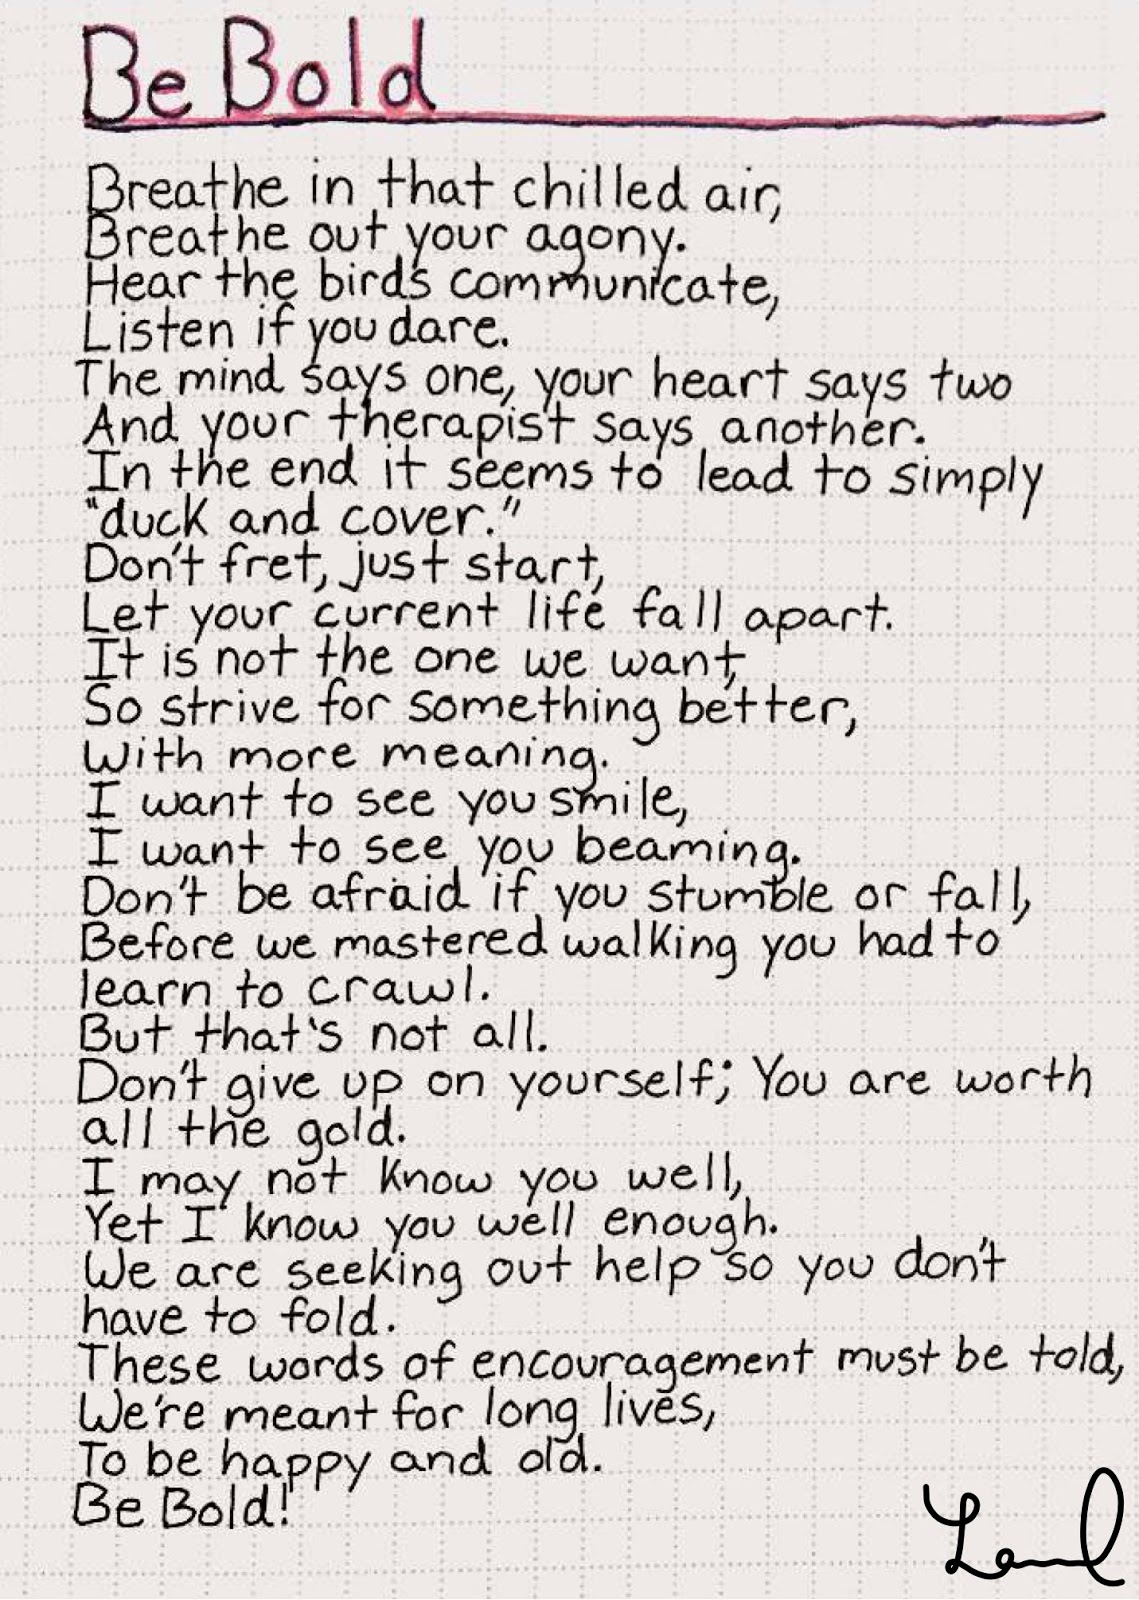 Be Bold
Breathe in that chilled air,
Breathe out your agony.
Hear the birds communicate,
Listen if you dare.
The mind says one, your heart says two
And your therapist says another.
In the end it seems to lead to simply
"duck and cover."
Don't fret, just start,
Let your current life fall apart.
It is not the one we want,
So strive for something better,
With more meaning.
I want to see you smile,
I want to see you beaming.
Don't be afraid if you stumble or fall,
Before we mastered walking you had to
learn to crawl.
But that's not all.
Don't give up on yourself; You are worth
all the gold.
I may not know you well,
Yet I know you well enough.
We are seeking out help so you don't
have to fold.
These words of encouragement must be told,
We're meant for long lives,
To be happy and old.
Be Bold!